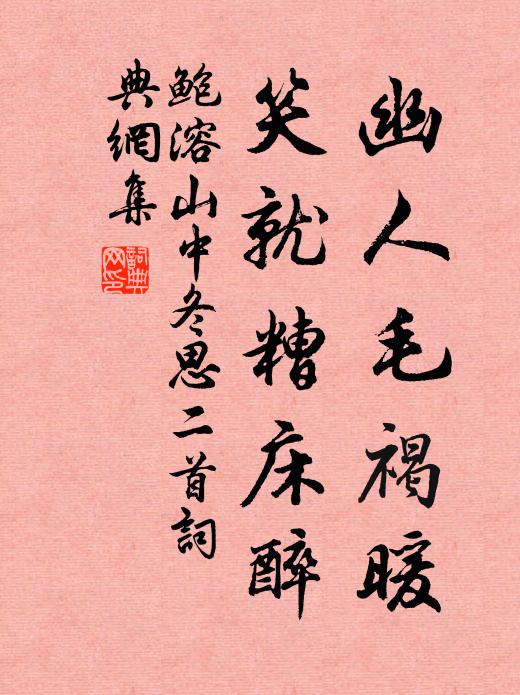 幽人毛褐暖
笑就糟床醉
鲍溶山中冬思二首詞
典網集
詞典
网印